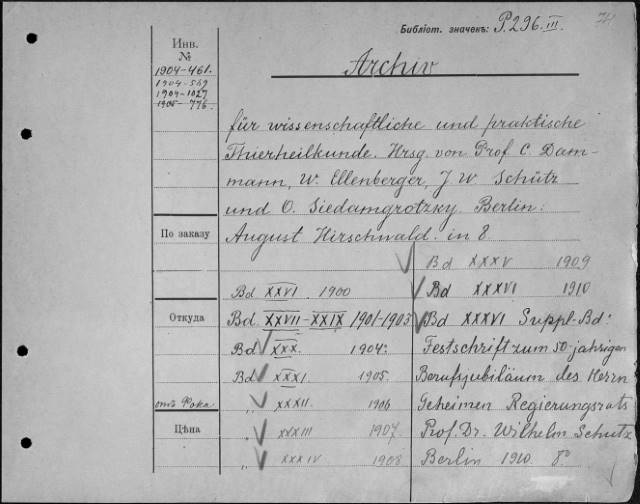 Библіот. значекъ: P.296.III.
Инв.
№
1904-461.
1904-549
1904-1027
1905-776.
Archiv
für wissenschaftliche und praktische
Thierheilkunde. Hrsg. von Prof C. Dam-
mann, W. Ellenberger, J. W. Schütz
und O. Siedamgrotzky Berlin:
По заказу
August Hirschwald. in 8
Bd XXVI. 1900
Откуда
Bd. XXVII-XXIX 1901-1903
Bd XXX. 1904.
Bd XXXI. 1905.
отъ Фока
„ XXXII. 1906
Цѣна
„ XXXIII 1907
„ XXXIV 1908
Bd XXXV 1909
Bd XXXVI 1910
Bd XXXVI Suppl-Bd:
Festschrift zum 50-jahrigen
Berufsjubiläum des Herrn
Geheimen Regierungsrats
Prof. Dr. Wilhelm Schutz
Berlin 1910. 8º